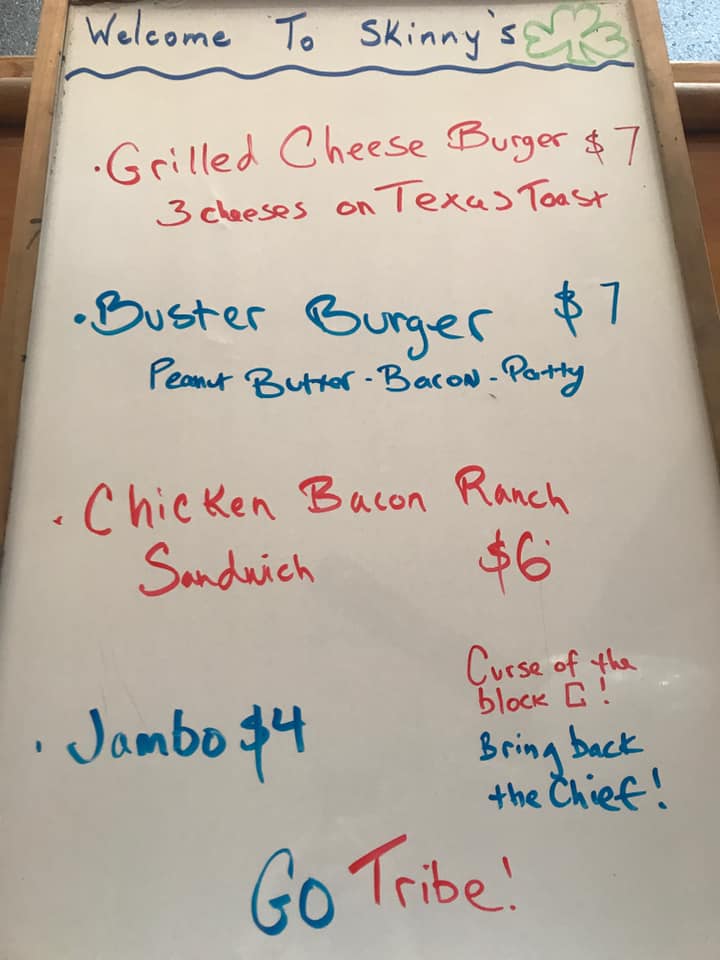 Welcome To Skinny's
· Grilled Cheese Burger $7
3 cheeses on Texas Toast
· Buster Burger $7
Peanut Butter - Bacon - Patty
· Chicken Bacon Ranch
Sandwich $6
Curse of the
block C!
· Jambo $4
Bring back
the Chief!
Go Tribe!